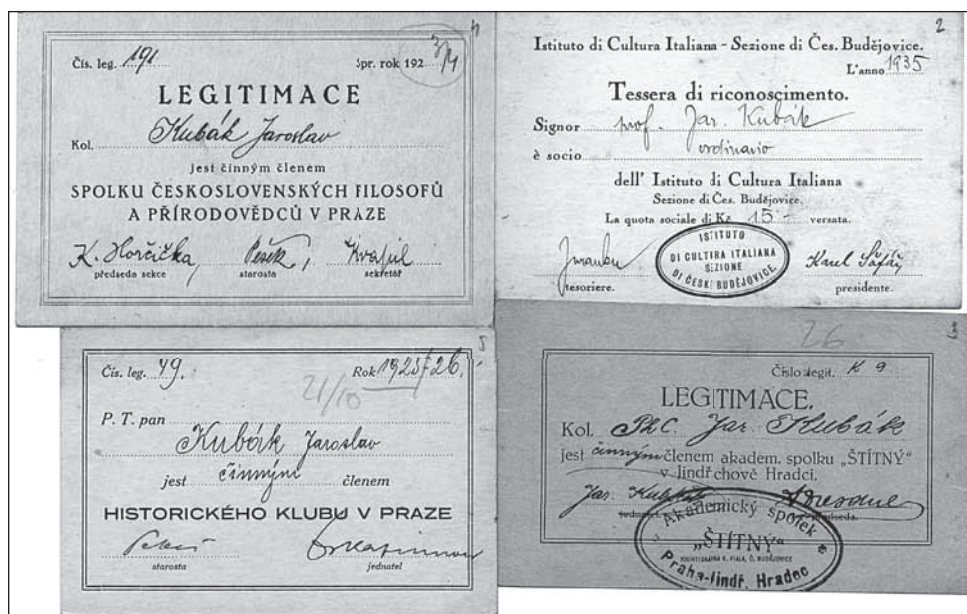 Čís. leg. 191 Spr. rok 192 3/4
4
LEGITIMACE
Kol. Kubák Jaroslav
jest činným členem
SPOLKU ČESKOSLOVENSKÝCH FILOSOFŮ
A PŘÍRODOVĚDCŮ V PRAZE
K. Horčička, Pešek, Kvapil
předseda sekce starosta sekretář
2
Istituto di Cultura Italiana - Sezione di Čes. Budějovice.
L'anno 1935
Tessera di riconoscimento.
Signor prof. Jar. Kubák
è socio ordinario
dell' Istituto di Cultura Italiana
Sezione di Čes. Budějovice.
La quota sociale di Kč 15 - versata.
ISTITUTO
DI CULTIRA ITALIANA
SEZIONE
DI ČESKÉ BUDĚJOVICE.
Karel Šafář
tesoriere. presidente.
5
Čís. leg. 49. Rok 1925/26.
21/10
P. T. pan
Kubák Jaroslav
jest činným členem
HISTORICKÉHO KLUBU V PRAZE
starosta jednatel
26
Číslo legit. K 9
LEGITIMACE.
Kol. PhC. Jar. Kubák
jest činným členem akadem. spolku „ŠTÍTNÝ"
v Jindřichově Hradci.
Jar. Kubák
předseda.
Akademický spolek
„ŠTÍTNÝ"
Praha-Jindř. Hradec